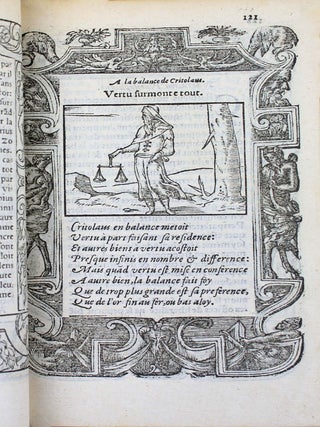 121
A la balance de Critolaus.
Vertu surmonte tout.
Critolaus en balance metoit
Vertu à part faisant sa residence:
Et autres biens a vertu acostoit
Presque infinis en nombre & difference:
Mais quād vertu est mise en conference
A autre bien, la balance fait foy
Que de trop plus grande est sa preference,
Que de l'or fin au fer, ou bas aloy.